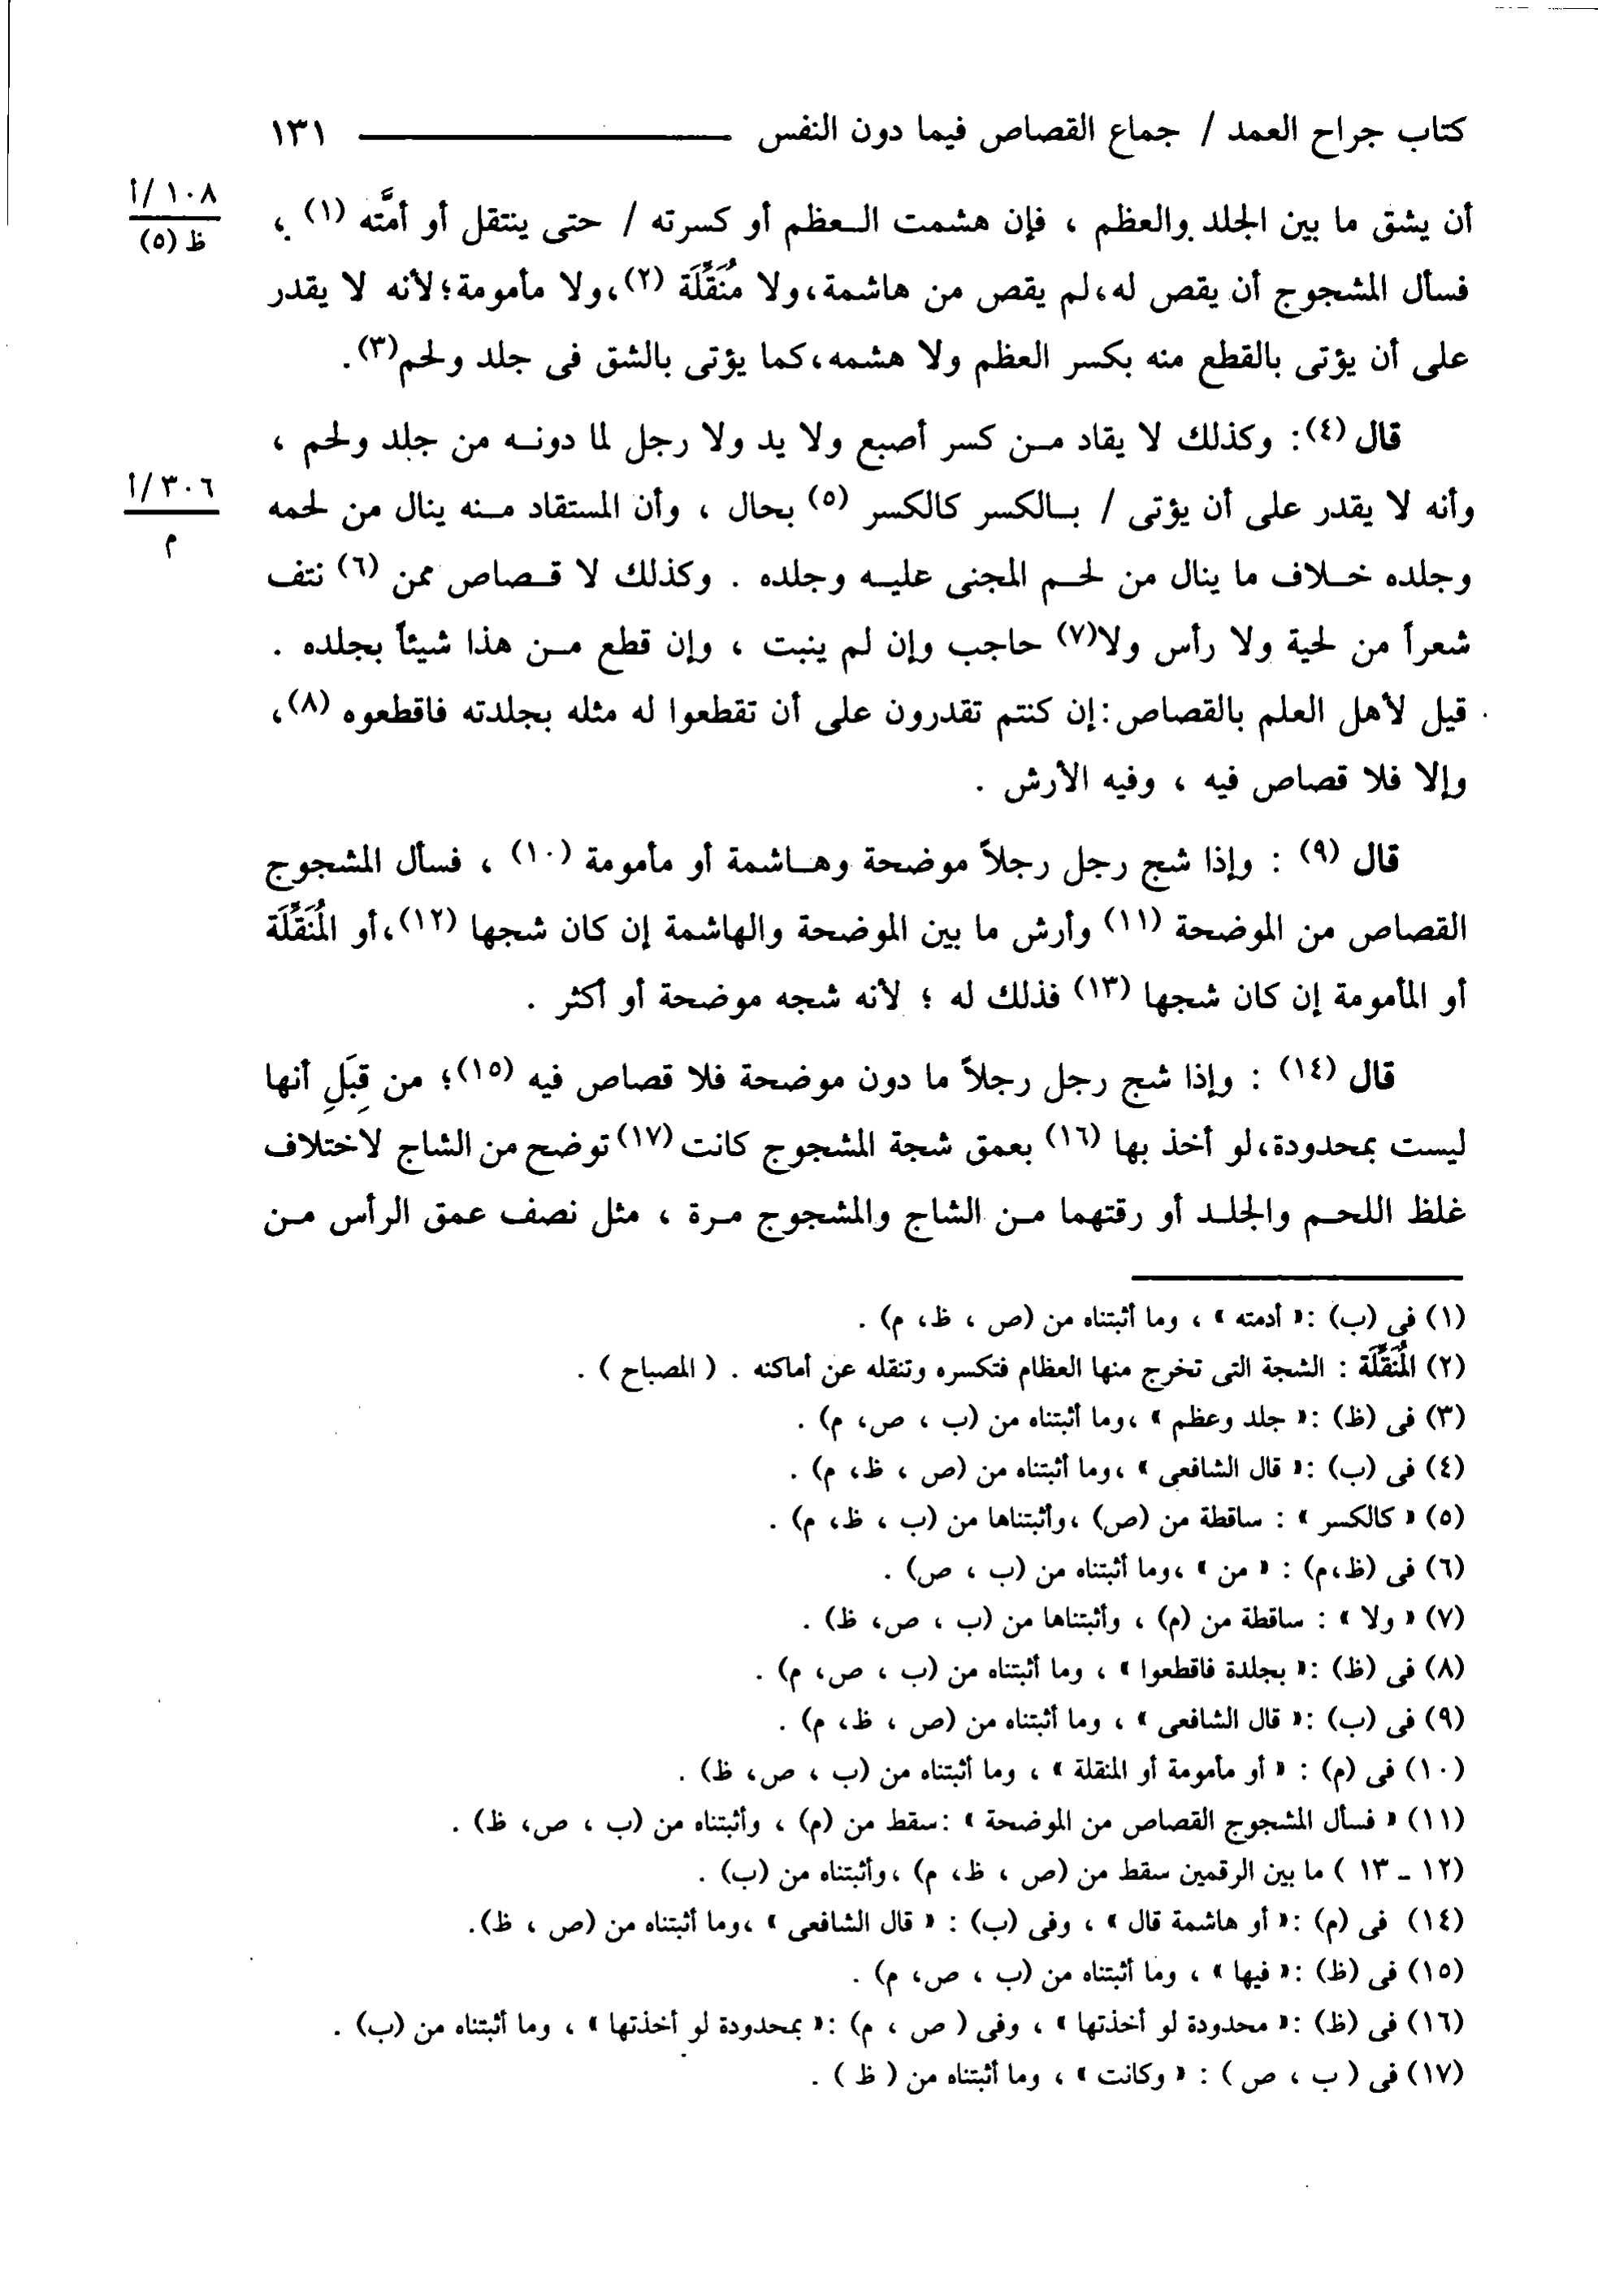 كتاب جراح العمد / جماع القصاص فيما دون النفس ــــــــــ ١٣١
١٠٨/أ
ظ (٥)
أن يشق ما بين الجلد والعظم ، فإن هشمت العظم أو كسرته / حتى ينتقل أو أمَّته (١) ،
فسأل المشجوج أن يقص له، لم يقص من هاشمة، ولا مُنَقِّلَة (٢)، ولا مأمومة؛ لأنه لا يقدر
على أن يؤتى بالقطع منه بكسر العظم ولا هشمه، كما يؤتى بالشق فى جلد ولحم(٣).
قال (٤): وكذلك لا يقاد مـن كسر أصبع ولا يد ولا رجل لما دونـه من جلد ولحم ،
٣٠٦/أ
م
وأنه لا يقدر على أن يؤتى / بالكسر كالكسر (٥) بحال ، وأن المستقاد منه ينال من لحمه
وجلده خلاف ما ينال من لحم المجنى عليه وجلده . وكذلك لا قصاص ممن (٦) نتف
شعراً من لحية ولا رأس ولا(٧) حاجب وإن لم ينبت ، وإن قطع مـن هذا شيئاً بجلده .
قيل لأهل العلم بالقصاص: إن كنتم تقدرون على أن تقطعوا له مثله بجلدته فاقطعوه (٨)،
وإلا فلا قصاص فيه ، وفيه الأرش .
قال (٩) : وإذا شج رجل رجلاً موضحة وهاشمة أو مأمومة (١٠) ، فسأل المشجوج
القصاص من الموضحة (١١) وأرش ما بين الموضحة والهاشمة إن كان شجها (١٢)، أو المُنَقِّلَة
أو المأمومة إن كان شجها (١٣) فذلك له ؛ لأنه شجه موضحة أو أكثر .
قال (١٤) : وإذا شج رجل رجلاً ما دون موضحة فلا قصاص فيه (١٥)؛ من قِبَلِ أنها
ليست بمحدودة، لو أخذ بها (١٦) بعمق شجة المشجوج كانت (١٧) توضح من الشاج لاختلاف
غلظ اللحم والجلد أو رقتهما من الشاج والمشجوج مرة ، مثل نصف عمق الرأس من
(١) فى (ب) :« أدمته » ، وما أثبتناه من (ص ، ظ، م) .
(٢) المُنَقِّلَة : الشجة التى تخرج منها العظام فتكسره وتنقله عن أماكنه . ( المصباح ) .
(٣) فى (ظ) :« جلد وعظم » ،وما أثبتناه من (ب ، ص، م) .
(٤) فى (ب) :« قال الشافعى » ،وما أثبتناه من (ص ، ظ، م) .
(٥) « كالكسر » : ساقطة من (ص) ،وأثبتناها من (ب ، ظ، م) .
(٦) فى (ظ،م) : « من » ،وما أثبتناه من (ب ، ص) .
(٧) « ولا » : ساقطة من (م) ، وأثبتناها من (ب ، ص، ظ) .
(٨) فى (ظ) :« بجلدة فاقطعوا » ، وما أثبتناه من (ب ، ص، م) .
(٩) فى (ب) :« قال الشافعى » ، وما أثبتناه من (ص ، ظ، م) .
(١٠) فى (م) : « أو مأمومة أو المنقلة » ، وما أثبتناه من (ب ، ص، ظ) .
(١١) « فسأل المشجوج القصاص من الموضحة » :سقط من (م) ، وأثبتناه من (ب ، ص، ظ) .
(١٢ ـ ١٣ ) ما بين الرقمين سقط من (ص ، ظ، م) ،وأثبتناه من (ب) .
(١٤) فى (م) :« أو هاشمة قال » ، وفى (ب) : « قال الشافعى » ،وما أثبتناه من (ص ، ظ).
(١٥) فى (ظ) :« فيها » ، وما أثبتناه من (ب ، ص، م) .
(١٦) فى (ظ) :« محدودة لو أخذتها » ، وفى ( ص ، م) :« بمحدودة لو أخذتها » ، وما أثبتناه من (ب) .
(١٧) فى ( ب ، ص ) : « وكانت » ، وما أثبتناه من ( ظ ) .